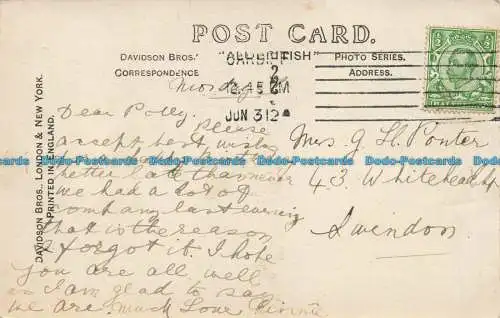 POST CARD.
DAVIDSON BROS.' "ALL-BRITISH" PHOTO SERIES.
CORRESPONDENCE ADDRESS.
CARDIFF
12.45 PM
JUN 3 12
Monday
Dear Polly, please
accept best wishes
better late than never
we had a lot of
company last evening
that is the reason
I forgot it. I hope
you are all well
as I am glad to say
we are. much Love
Mrs. J. H. Ponter
43. Whitehead
Swindon
DAVIDSON BROS., LONDON & NEW YORK.
PRINTED IN ENGLAND.
Dodo-Postcards Dodo-Postcards Dodo-Postcards Dodo-Postcards